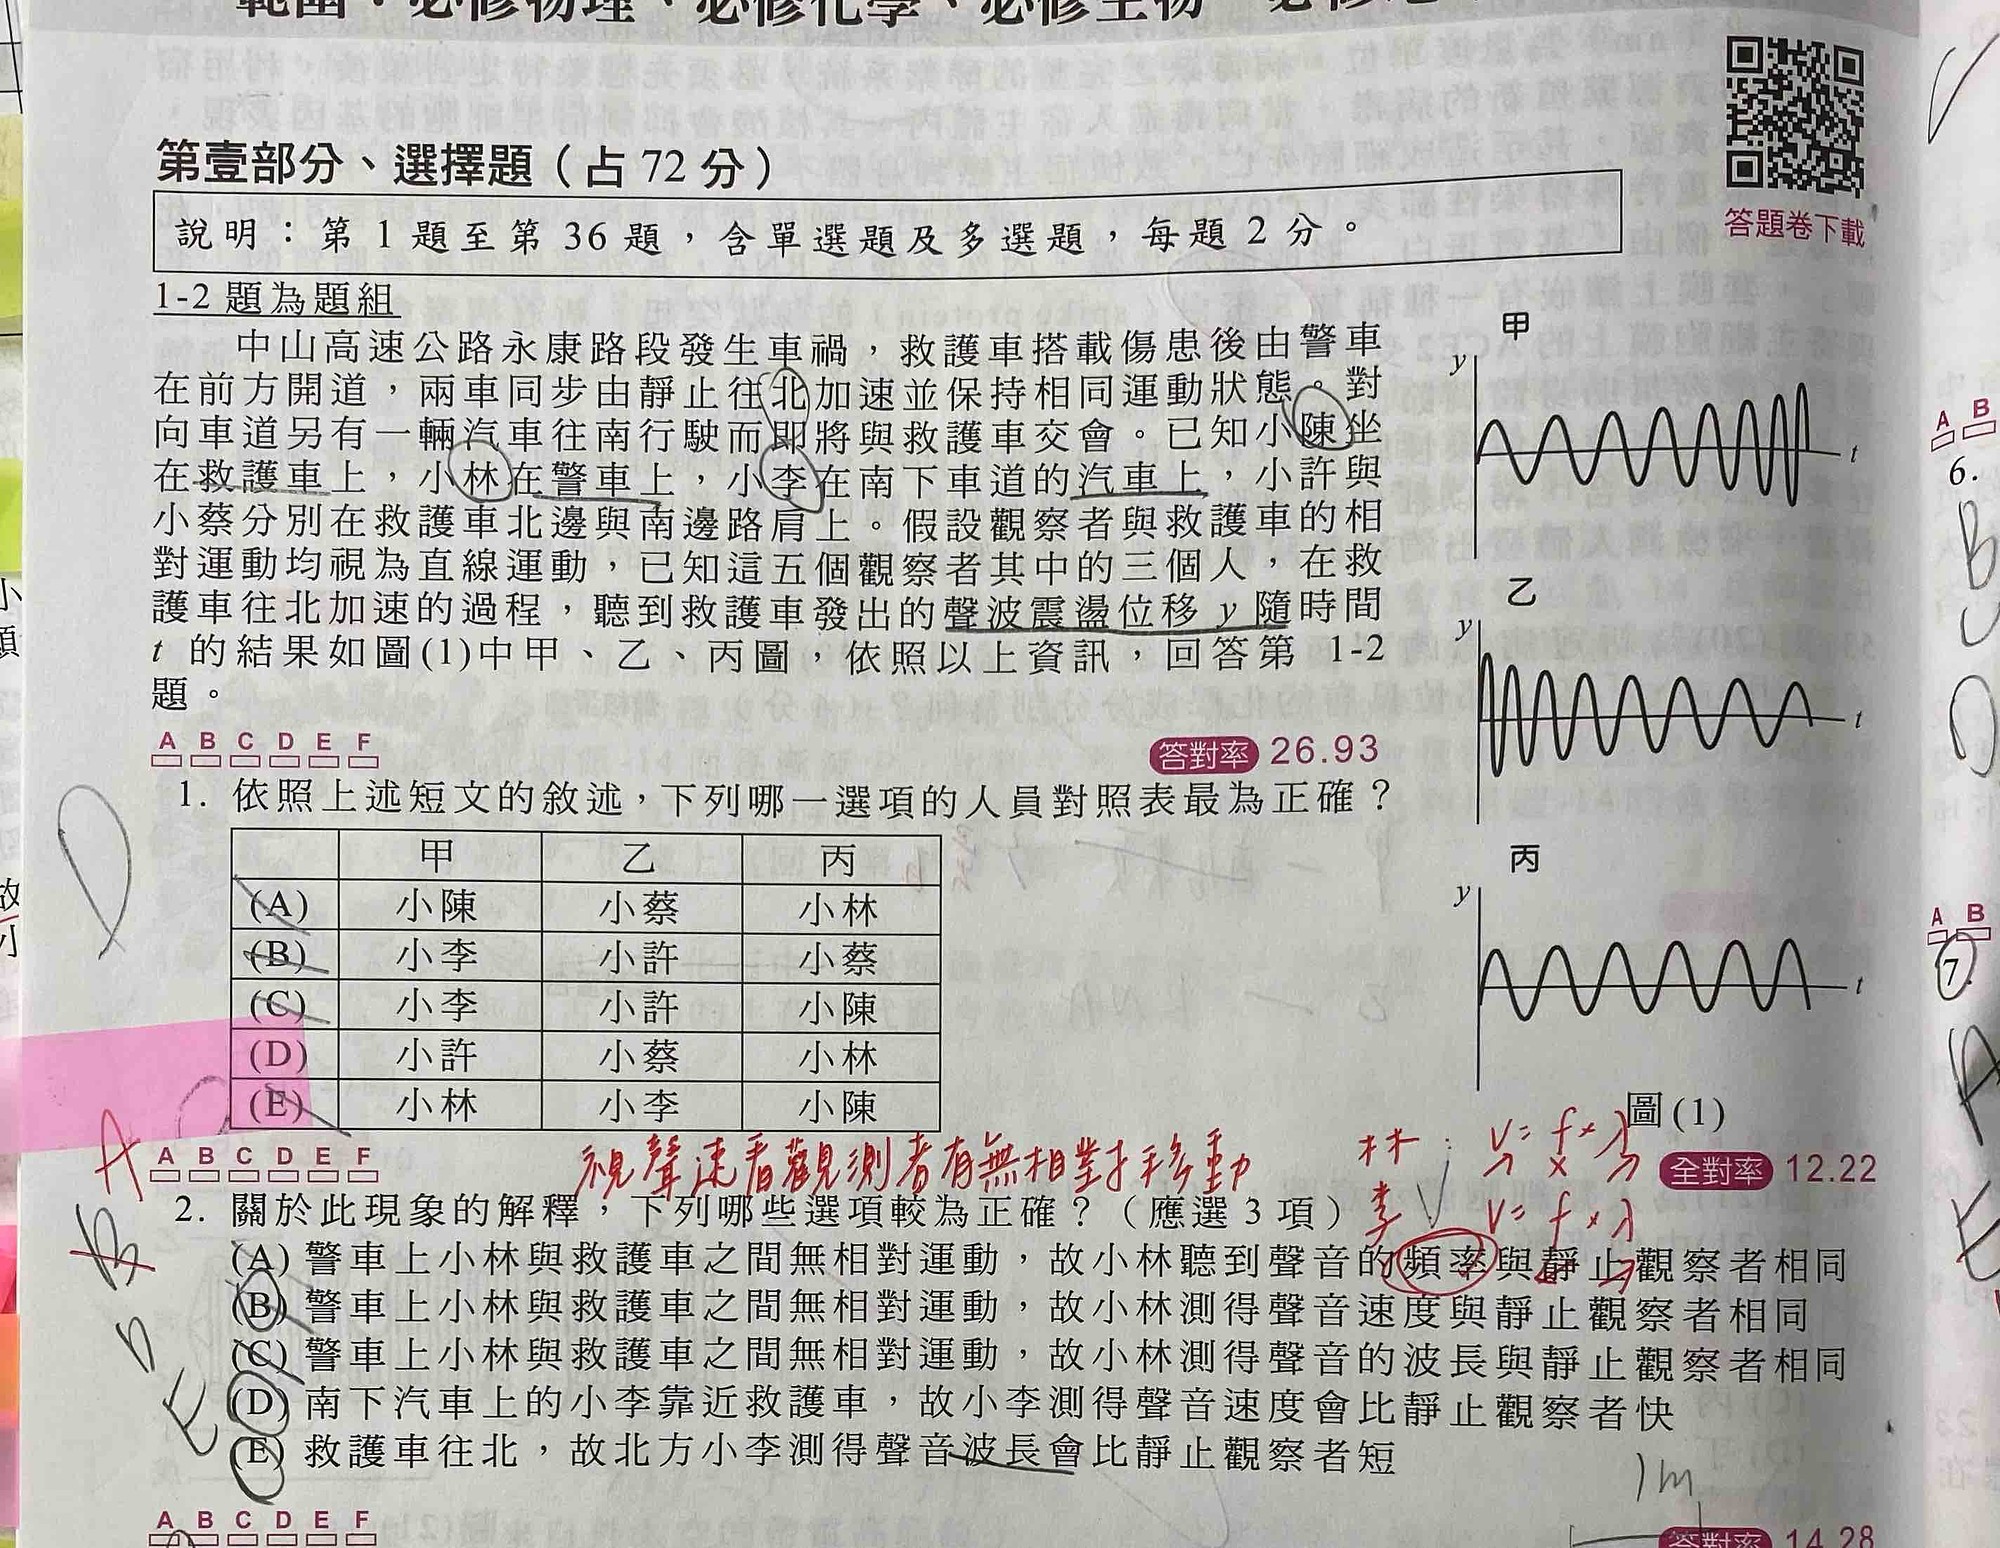 範圍：必修物理、必修化學、必修生物
答題卷下載
第壹部分、選擇題（占 72 分）
說明：第 1 題至第 36 題，含單選題及多選題，每題 2 分。
1-2 題為題組
中山高速公路永康路段發生車禍，救護車搭載傷患後由警車
在前方開道，兩車同步由靜止往北加速並保持相同運動狀態。對
向車道另有一輛汽車往南行駛而即將與救護車交會。已知小陳坐
在救護車上，小林在警車上，小李在南下車道的汽車上，小許與
小蔡分別在救護車北邊與南邊路肩上。假設觀察者與救護車的相
對運動均視為直線運動，已知這五個觀察者其中的三個人，在救
護車往北加速的過程，聽到救護車發出的聲波震盪位移 y 隨時間
t 的結果如圖(1)中甲、乙、丙圖，依照以上資訊，回答第 1-2
題。
甲
y
t
乙
y
t
丙
y
t
圖(1)
A B C D E F
答對率 26.93
D
1. 依照上述短文的敘述，下列哪一選項的人員對照表最為正確？
甲 乙 丙
(A) 小陳 小蔡 小林
(B) 小李 小許 小蔡
(C) 小李 小許 小陳
(D) 小許 小蔡 小林
(E) 小林 小李 小陳
視聲速看觀測者有無相對移動
林： V = f × λ
李 V = f × λ
A B C D E F
全對率 12.22
A
B
D
E
2. 關於此現象的解釋，下列哪些選項較為正確？（應選 3 項）
(A) 警車上小林與救護車之間無相對運動，故小林聽到聲音的頻率與靜止觀察者相同
(B) 警車上小林與救護車之間無相對運動，故小林測得聲音速度與靜止觀察者相同
(C) 警車上小林與救護車之間無相對運動，故小林測得聲音的波長與靜止觀察者相同
(D) 南下汽車上的小李靠近救護車，故小李測得聲音速度會比靜止觀察者快
(E) 救護車往北，故北方小李測得聲音波長會比靜止觀察者短
1m
A B C D E F
答對率 14.28
A B
6.
B
D
A B
7.
A
E